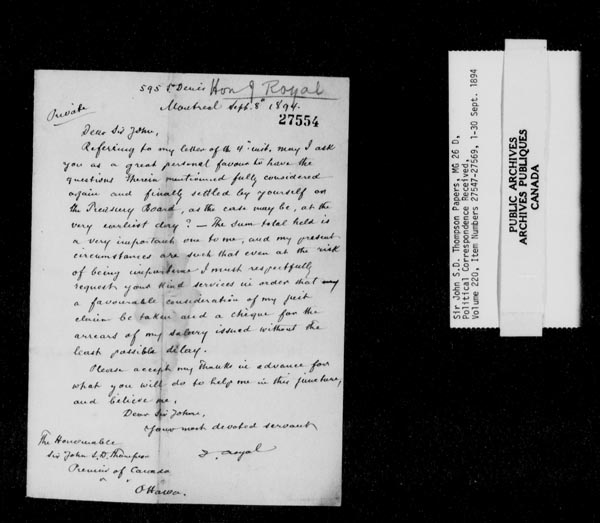 595 St Denis Hon J Royal
Montreal Sept. 8th 1894.
Private
27554
Dear Sir John,
Refering to my letter of the 4th inst, may I ask
you as a great personal favour to have the
questions therein mentioned fully considered
again and finally settled by yourself or
the Treasury Board, as the case may be, at the
very earliest day? — The sum total held is
a very important one to me, and my present
circumstances are such that even at the risk
of being importune I must respectfully
request your kind services in order that
a favourable consideration of my just
claim be taken and a cheque for the
arrears of my salary issued without the
least possible delay.
Please accept my thanks in advance for
what you will do to help me in this juncture,
and believe me,
Dear Sir John,
Your most devoted servant
J. Royal
The Honourable
Sir John S. D. Thompson
Premier of Canada
Ottawa.
Sir John S.D. Thompson Papers, MG 26 D,
Political Correspondence Received,
Volume 220, Item Numbers 27547-27569, 1-30 Sept. 1894
PUBLIC ARCHIVES
ARCHIVES PUBLIQUES
CANADA